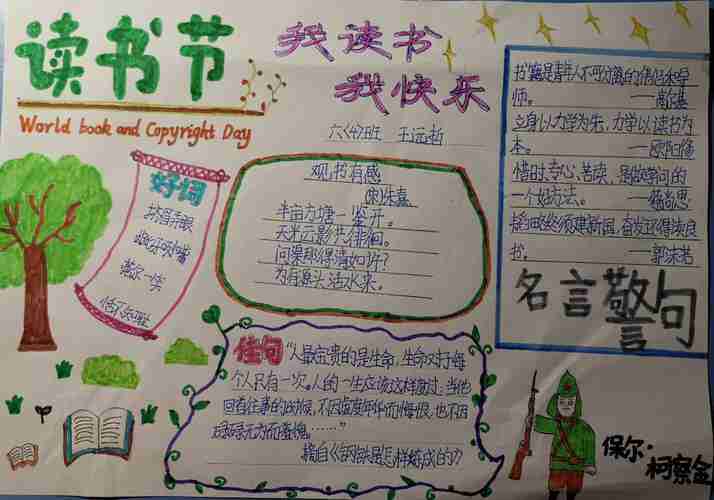 读书节
World book and Copyright Day
我读书
我快乐
六(4)班 王远哲
好词
挤眉弄眼
莞尔一笑
观书有感
(宋)朱熹
半亩方塘一鉴开,
天光云影共徘徊。
问渠那得清如许?
为有源头活水来。
佳句
"人最宝贵的是生命,生命对于每
个人只有一次,人的一生应该这样度过:当他
回首往事的时候,不因虚度年华而悔恨,也不因
碌碌无为而羞愧……"
摘自《钢铁是怎样炼成的》
书籍是青年人不可分离的
师。 ——高尔基
立身以力学为先,力学以读书为
本。 ——欧阳修
惜时、专心、苦读,是做学问的
一个好方法。 ——蔡尚思
韬略终须建新国,奋发还得读良
书。 ——郭沫若
名言警句
保尔·
柯察金